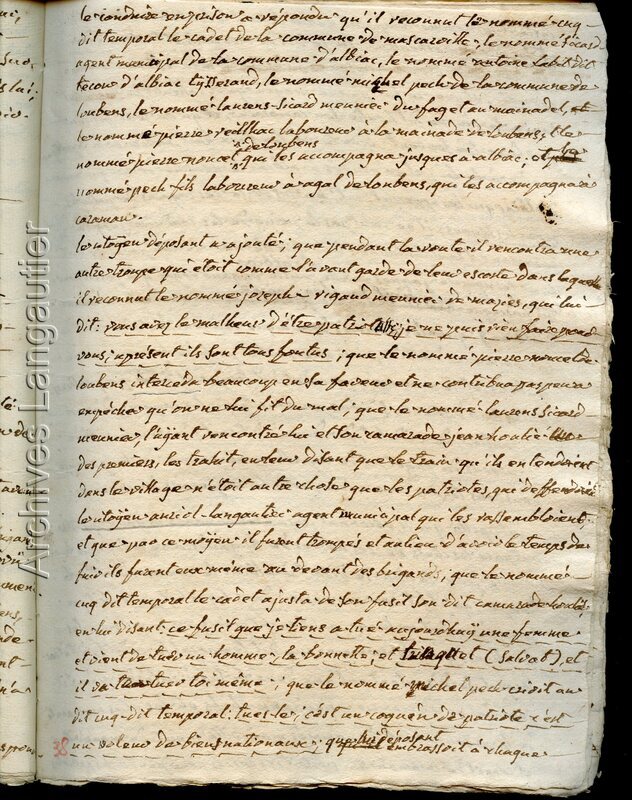 le conduire en prison a répondu qu'il reconnut le nommé cuq
dit temporal le cadet de la commune de mascarville, le nommé sicard
agent municipal de la commune d'albiac, le nommé antoine labit dit
tecou d'albiac tisserand, le nommé michel pech de la commune de
loubens, le nommé laurens sicard meunier du faget au mainadel, et
le nommé pierre veilhac laboureur à la mainade de loubens, le
de loubens
nommé pierre noucel qui les accompagna jusques à albiac; et le
nommé pech fils laboureur à agal de loubens, qui les accompagna à
caraman.
le citoyen déposant a ajouté; que pendant la route il rencontra une
autre troupe qui étoit comme l'avant garde de leur escorte dans laquelle
il reconnut le nommé joseph rigaud meunier de maziès, qui lui
dit: vous avez le malheur d'être patriotte, je ne puis rien faire pour
vous, à présent ils sont tous foutus; que le nommé pierre noucel de
loubens interceda beaucoup en sa faveur et ne contribua pas peu à
empêcher qu'on ne lui fit du mal; que le nommé laurens sicard
meunier, l'ayant rencontré lui et son camarade jean houlié
des premiers, les trahit, en leur disant que le train qu'ils entendoient
dans le village n'étoit autre chose que les patriotes, qui deffendoient
le citoyen langautier agent municipal qui les rassembloient;
et que par ce moyen il furent trompés et au lieu d'avoir le temps de
fuir ils furent eux même au devant des brigands; que le nommé
cuq dit temporal le cadet ajusta de son fusil son dit camarade houlié,
en lui disant: ce fusil que je tiens a tué aujourd'huy une femme
et vient de tuer un homme, la bonnette, et (Salvat), et
il va tuer toi même; que le nommé michel pech crioit au
dit cuq dit temporal: tues le, c'est un coquin de patriote c'est
un voleur de biens nationaux; que lui déposant embrassoit à chaque
38
Archives Langautier